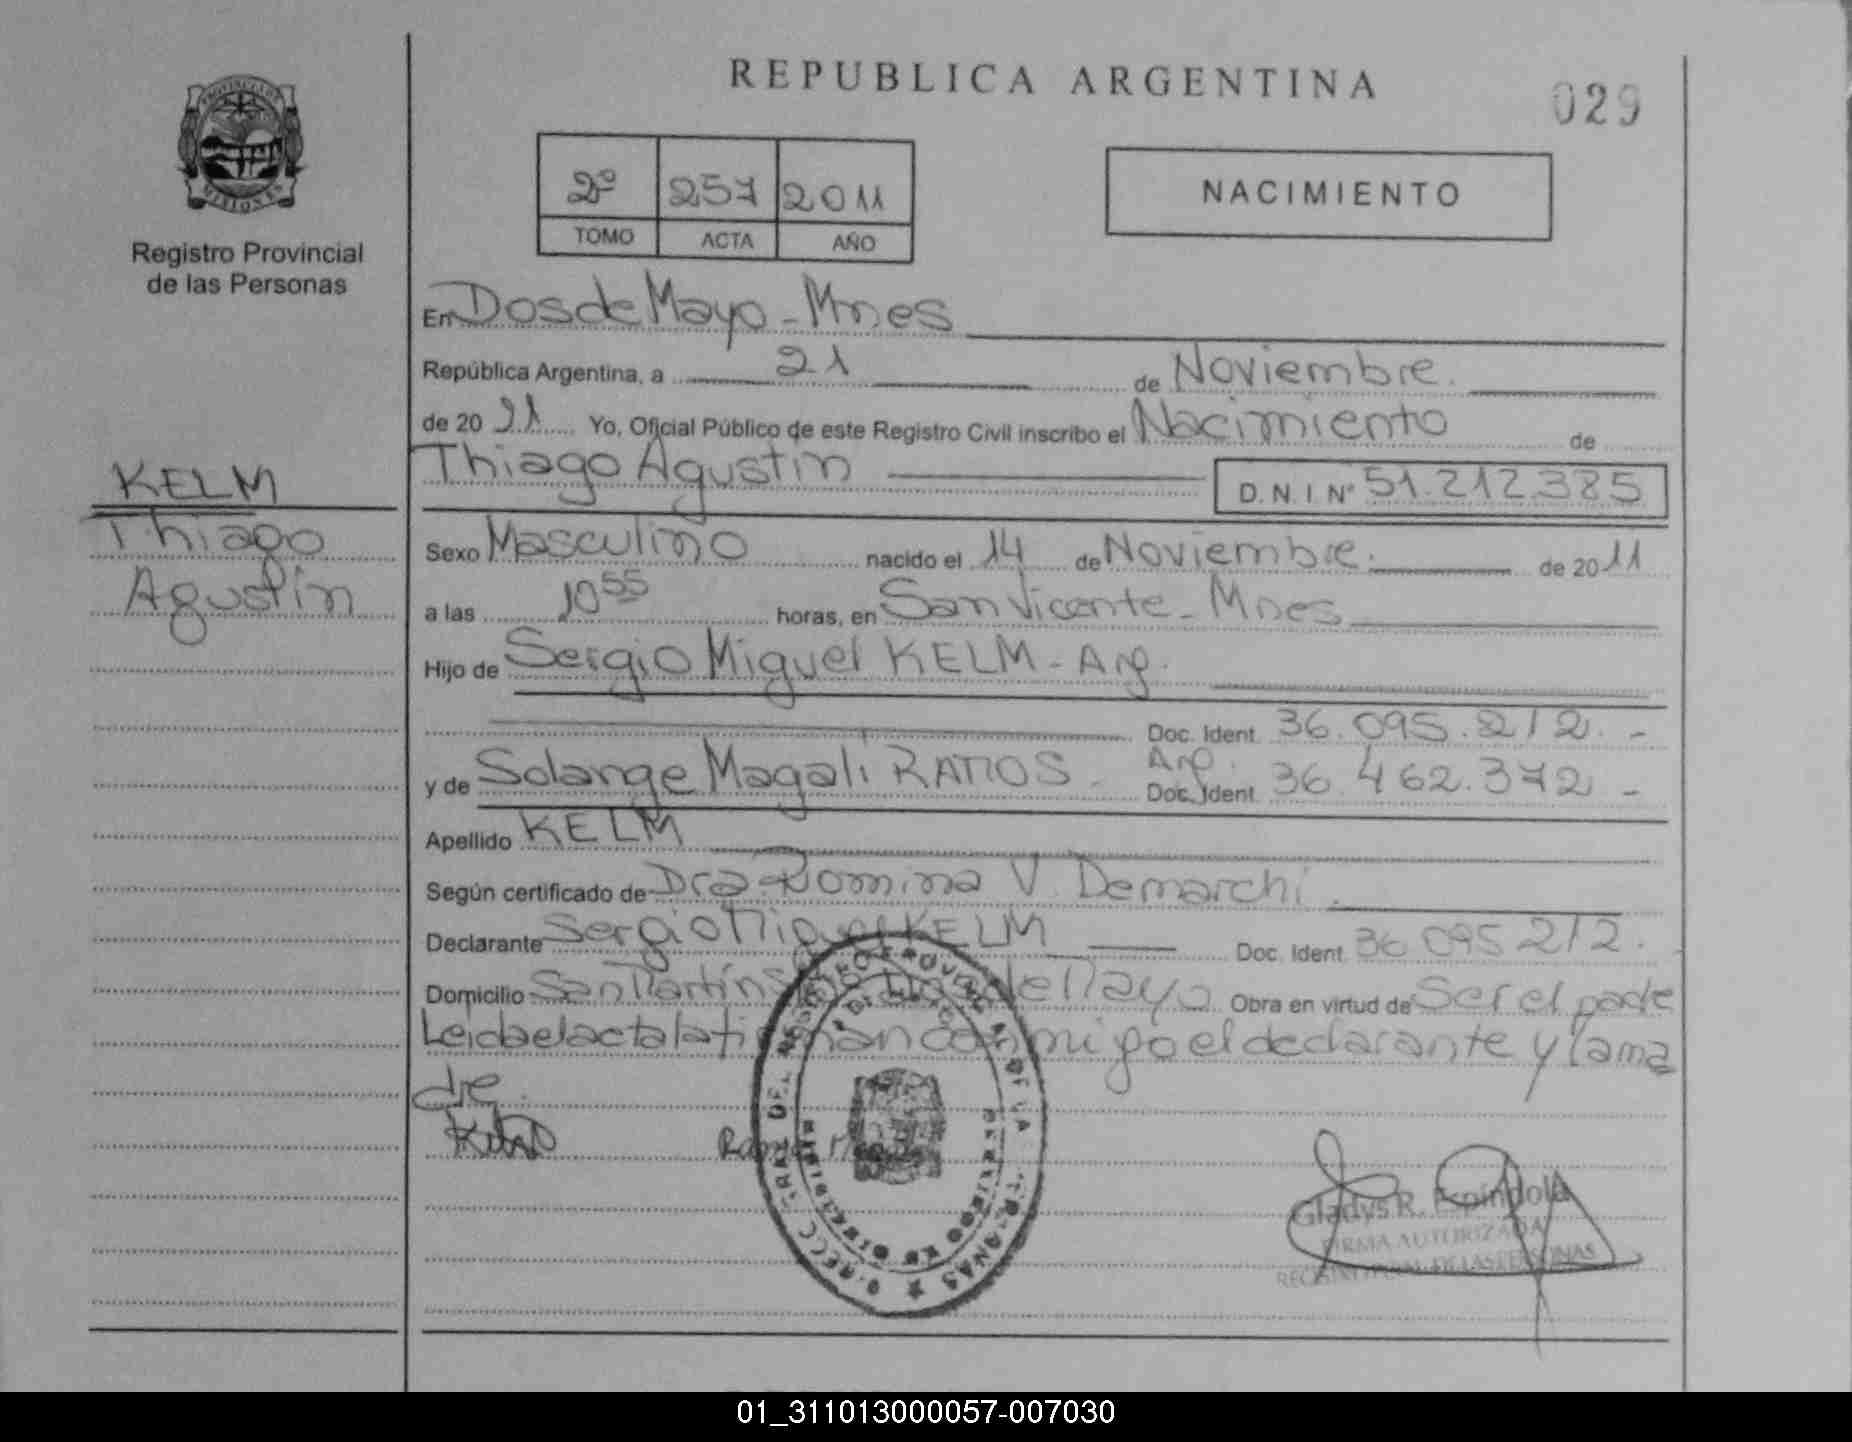 REPUBLICA ARGENTINA
029
PROVINCIA DE
MISIONES
Registro Provincial
de las Personas
2º 257 2011
TOMO ACTA AÑO
NACIMIENTO
En Dos de Mayo - Mnes
República Argentina, a 21 de Noviembre.
de 20 11 Yo, Oficial Público de este Registro Civil inscribo el Nacimiento de
Thiago Agustin D.N.I Nº 51.212.385
KELM
Thiago
Agustin
Sexo Masculino nacido el 14 de Noviembre. de 2011
a las 10 55 horas, en San Vicente - Mnes
Hijo de Sergio Miguel KELM - Arg.
Doc. Ident. 36.095.212. -
y de Solange Magali RAMOS - Arg. Doc. Ident. 36.462.372 -
Apellido KELM
Según certificado de Dra. Romina V. Demarchi.
Declarante Sergio Miguel KELM Doc. Ident. 36 095 212.
Domicilio San Martin Dos de Mayo Obra en virtud de Ser el padre
Leida el acta la firman conmigo el declarante y la ma
dre.
Gladys R. Espíndola
FIRMA AUTORIZADA
REGISTRO PCIAL. DE LAS PERSONAS
01_311013000057-007030